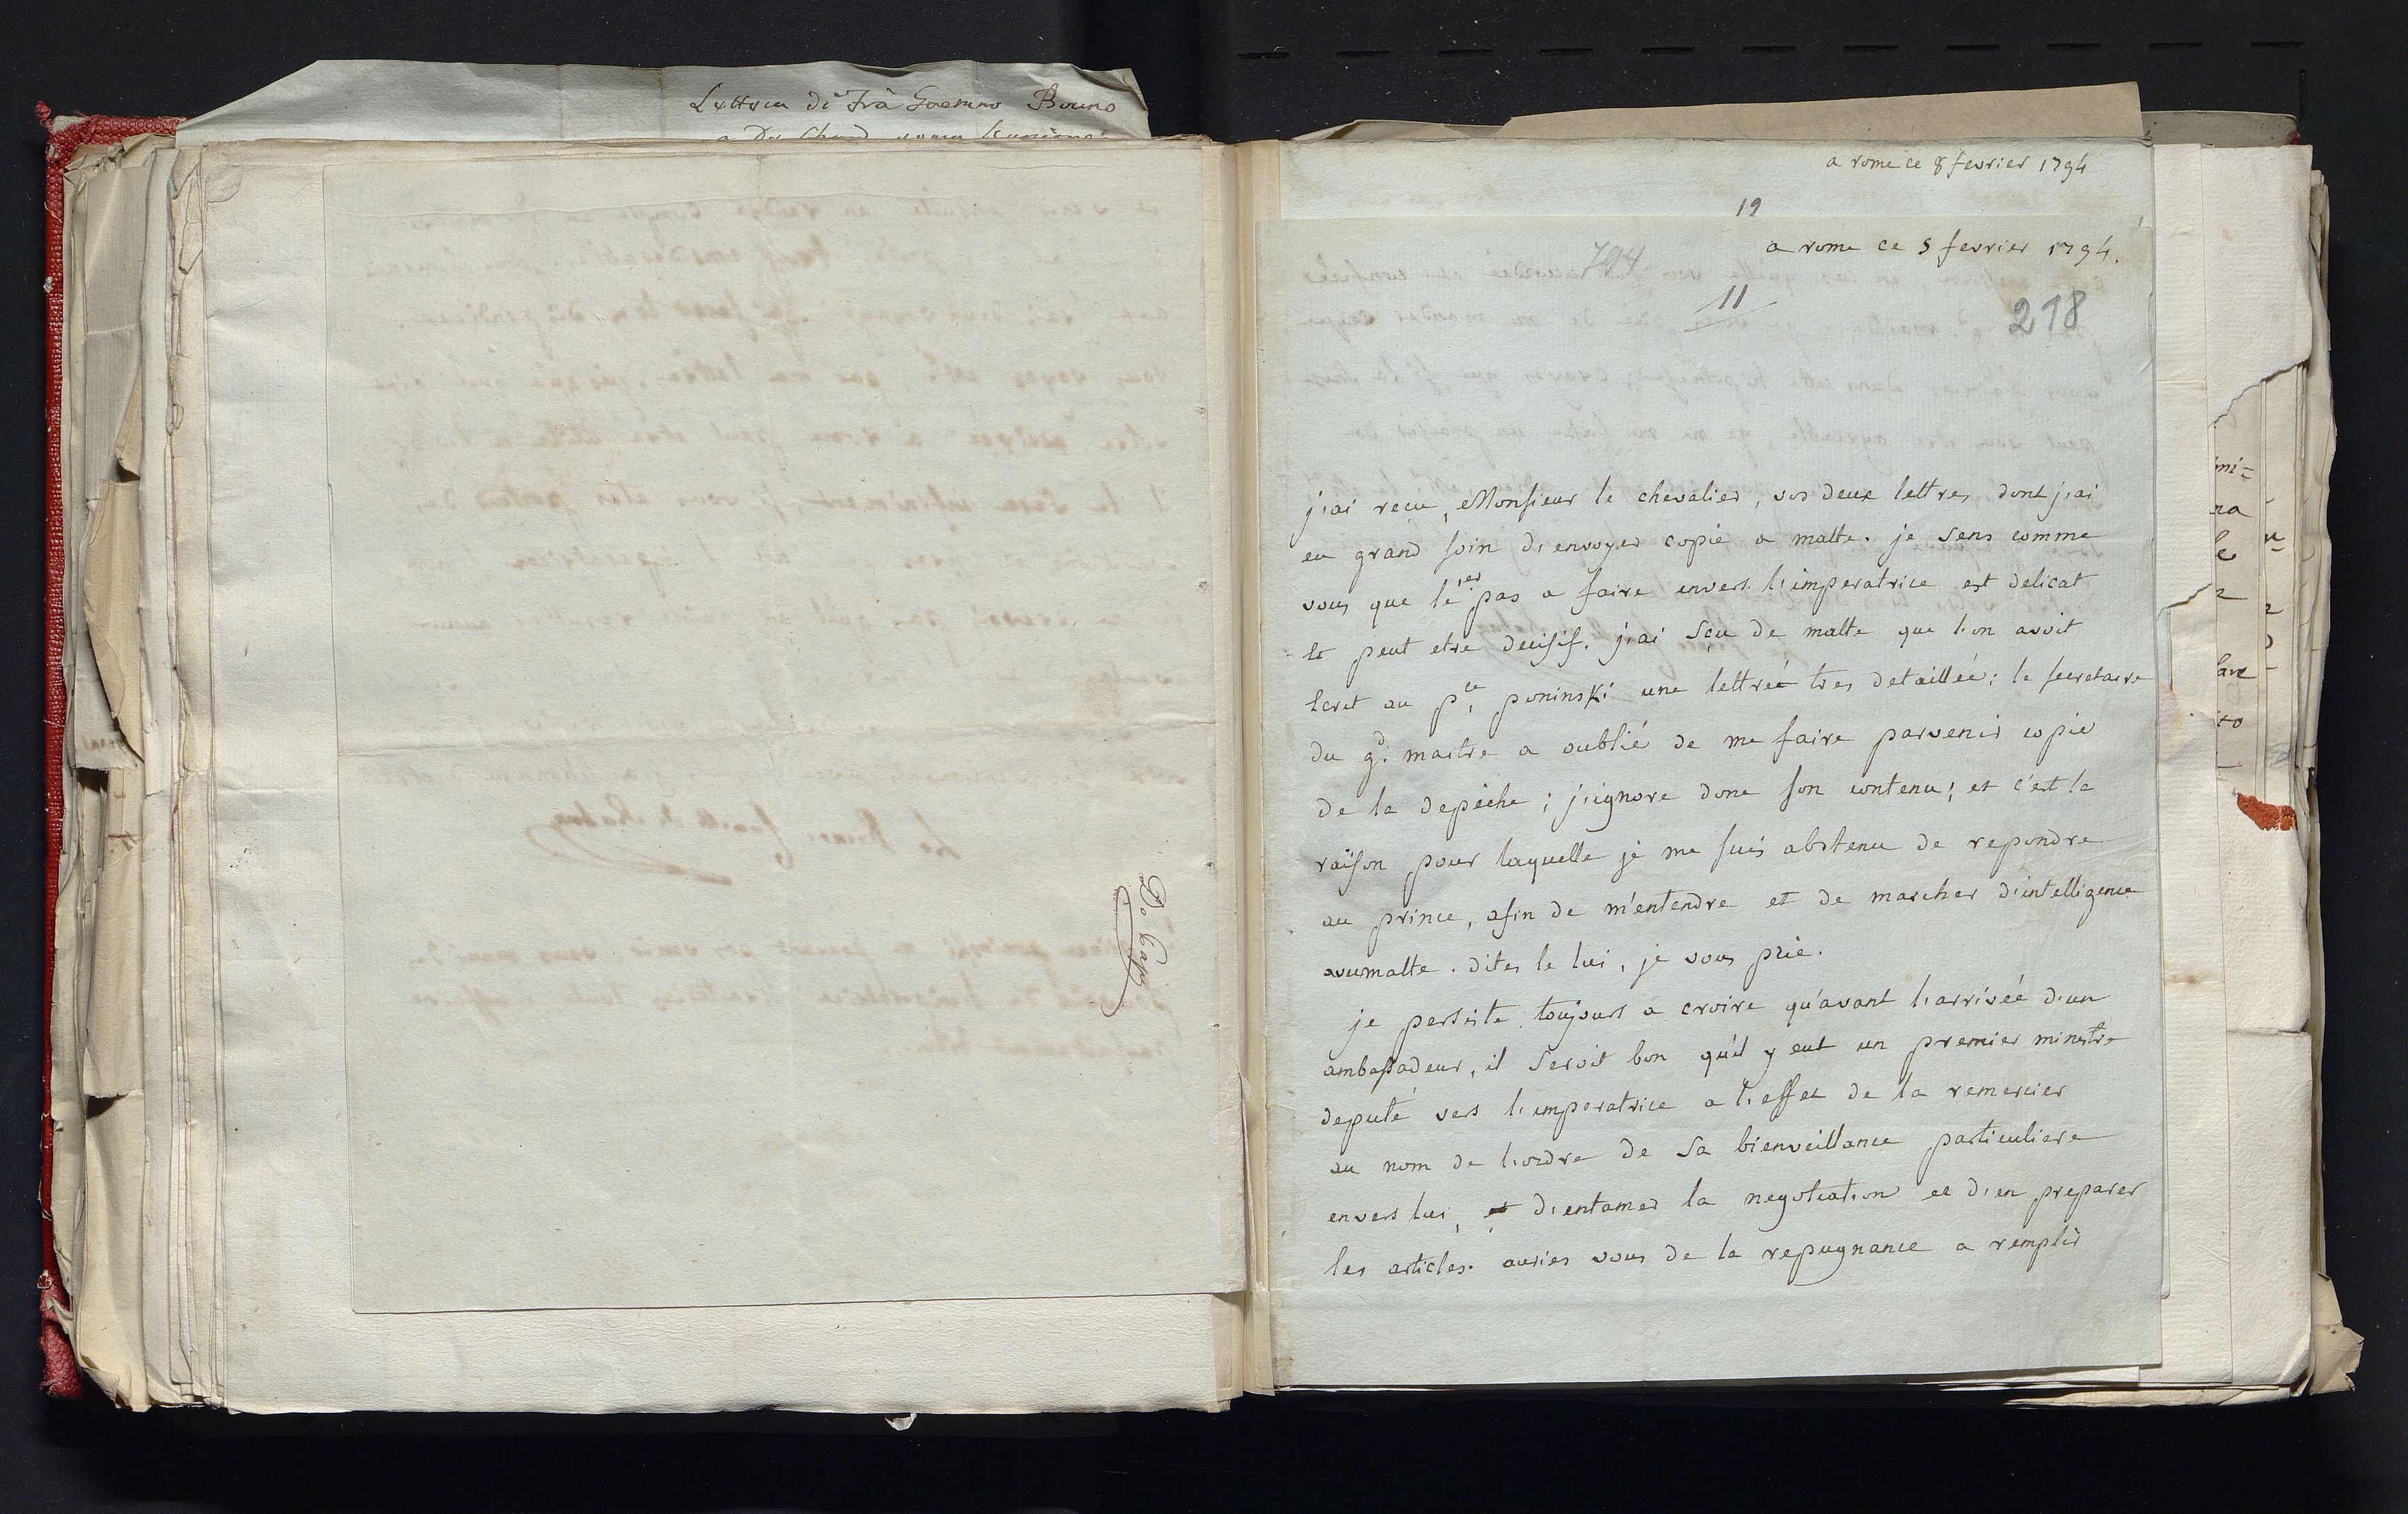 Lettera di Frà Gaetano Bruno
De Cap
a rome ce 8 fevrier 1794
12
a rome ce 5 fevrier 1794.
794
11
218
j'ai reçu, Monsieur le chevalier, vos deux lettres dont j'ai
eu grand soin d'envoyer copie a malte. je sens comme
vous que le 1er pas a faire envers l'imperatrice est delicat
et peut etre decisif. j'ai sçu de malte que l'on avoit
ecrit au pce poninski une lettre tres detaillée; le secretaire
du gd. maitre a oublié de me faire parvenir copie
de la depêche; j'ignore donc son contenu; et c'est la
raison pour laquelle je me suis abstenu de repondre
au prince, afin de m'entendre et de marcher d'intelligence
avec malte. dites le lui, je vous prie.
je persiste toujours a croire qu'avant l'arrivée d'un
ambassadeur, il seroit bon qu'il y eut un premier ministre
deputé vers l'imperatrice a l'effet de la remercier
au nom de l'ordre de sa bienveillance particuliere
envers lui, et d'entamer la negotiation et d'en preparer
les articles. auries vous de la repugnance a remplir